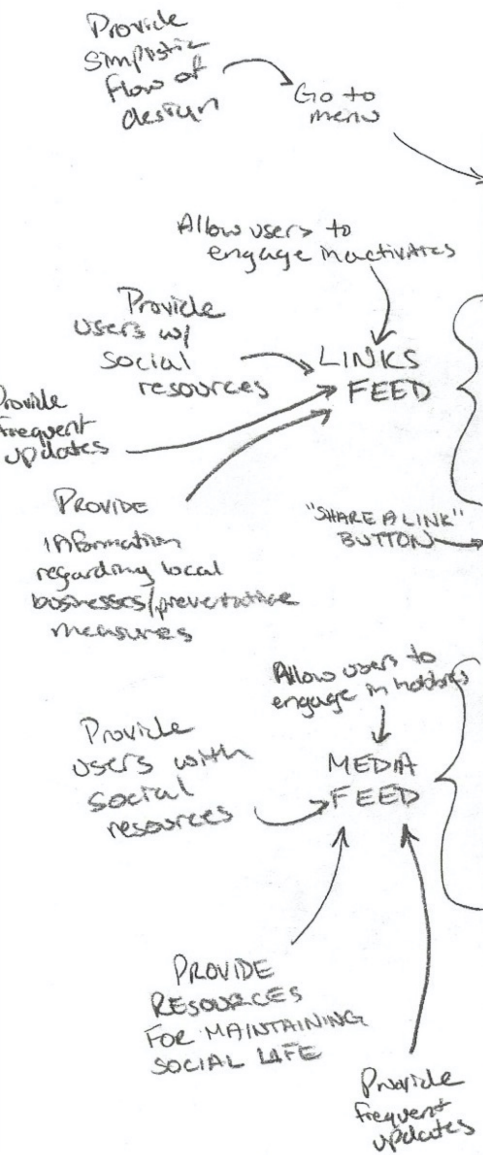 Provide
simplistic
flow of
design
Go to
menu
Allow users to
engage in activites
Provide
users w/
social
resources
LINKS
FEED
Provide
frequent
updates
PROVIDE
information
regarding local
businesses/preventative
measures
"SHARE A LINK"
BUTTON
Allow users to
engage in hobbies
Provide
users with
social
resources
MEDIA
FEED
PROVIDE
RESOURCES
FOR MAINTAINING
SOCIAL LIFE
Provide
frequent
updates